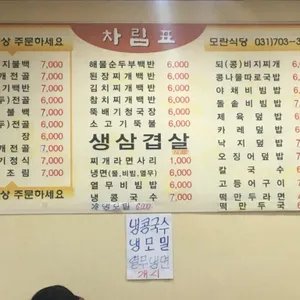 차림표
모란식당 031)703-3
상 주문하세요
지불백 7,000
개전골 7,000
두)전골 6,000
두백반 7,000
개전골 7,000
두)전골 6,000
장 6,000
개전골 7,000
기정식 7,000
조림 7,000
상 주문하세요
해물순두부백반 6,000
된장찌개백반 6,000
김치찌개백반 6,000
뚝배기청국장 6,000
소고기뚝불 6,000
생삼겹살
찌개라면사리 1,000
냉면(물,비빔,열무) 6,000
열무비빔밥 6,000
냉콩국수 7,000
냉모밀 6,000
되(콩)비지찌개 6,000
콩나물따로국밥
야채비빔밥
돌솥비빔밥
제육덮밥
카레덮밥
낙지덮밥
오징어덮밥
칼국수
고등어구이
떡만두라면
떡만두국
냉콩국수
냉모밀
열무냉면
개시